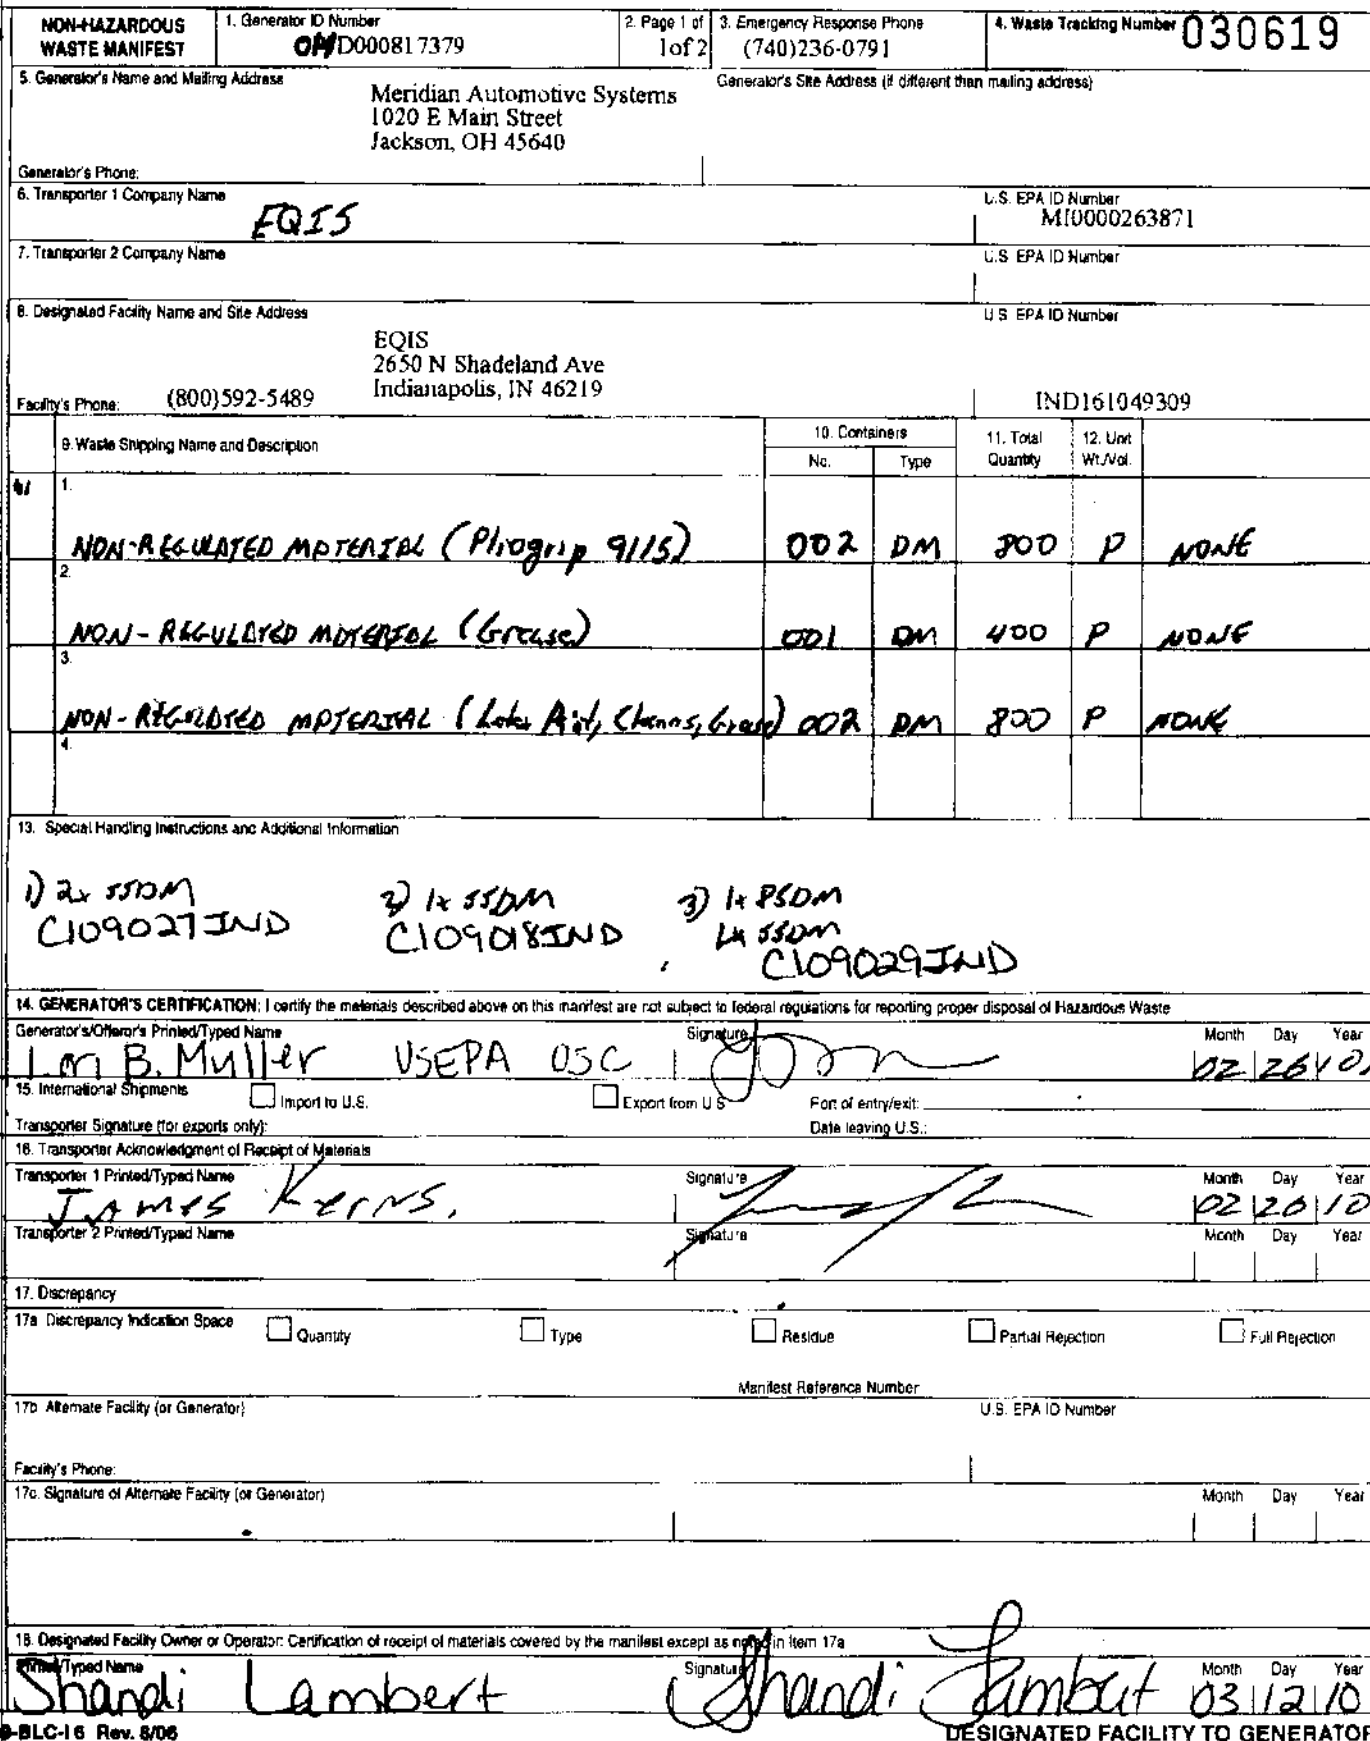 NON-HAZARDOUS WASTE MANIFEST
1. Generator ID Number
OHD000817379
2. Page 1 of
1of 2
3. Emergency Response Phone
(740)236-0791
4. Waste Tracking Number 030619
5. Generator's Name and Mailing Address
Generator's Site Address (if different than mailing address)
Meridian Automotive Systems
1020 E Main Street
Jackson, OH 45640
Generator's Phone:
6. Transporter 1 Company Name
EQIS
U.S. EPA ID Number
MI0000263871
7. Transporter 2 Company Name
U.S EPA ID Number
8. Designated Facility Name and Site Address
U S EPA ID Number
EQIS
2650 N Shadeland Ave
Indianapolis, IN 46219
Facility's Phone: (800)592-5489
IND161049309
9. Waste Shipping Name and Description
10. Containers
No. Type
11. Total Quantity
12. Unit Wt./Vol.
1.
NON-REGULATED MATERIAL (Pliogrip 9115) 002 DM 800 P NONE
2.
NON-REGULATED MATERIAL (Grease) 001 DM 400 P NONE
3.
NON-REGULATED MATERIAL ( Grease) 002 DM 800 P NONE
4.
13. Special Handling Instructions and Additional Information
1) 2x 55DM 2) 1x 55DM 3) 1x 85DM
1x 55DM
C109027IND C109018IND C109029IND
14. GENERATOR'S CERTIFICATION: I certify the materials described above on this manifest are not subject to federal regulations for reporting proper disposal of Hazardous Waste
Generator's/Offeror's Printed/Typed Name Signature Month Day Year
B. Muller USEPA OSC 02 26
15. International Shipments Import to U.S. Export from U S Port of entry/exit:
Transporter Signature (for exports only): Date leaving U.S.:
16. Transporter Acknowledgment of Receipt of Materials
Transporter 1 Printed/Typed Name Signature Month Day Year
James Kerns. 02 10
Transporter 2 Printed/Typed Name Signature Month Day Year
17. Discrepancy
17a Discrepancy Indication Space Quantity Type Residue Partial Rejection Full Rejection
Manifest Reference Number
17b Alternate Facility (or Generator) U.S. EPA ID Number
Facility's Phone:
17c. Signature of Alternate Facility (or Generator) Month Day Year
18. Designated Facility Owner or Operator: Certification of receipt of materials covered by the manifest except as noted in Item 17a
Printed/Typed Name Signature Month Day Year
Shandi Lambert Shandi Lambert 03 12 10
-BLC-I 6 Rev. 8/06
DESIGNATED FACILITY TO GENERATOR